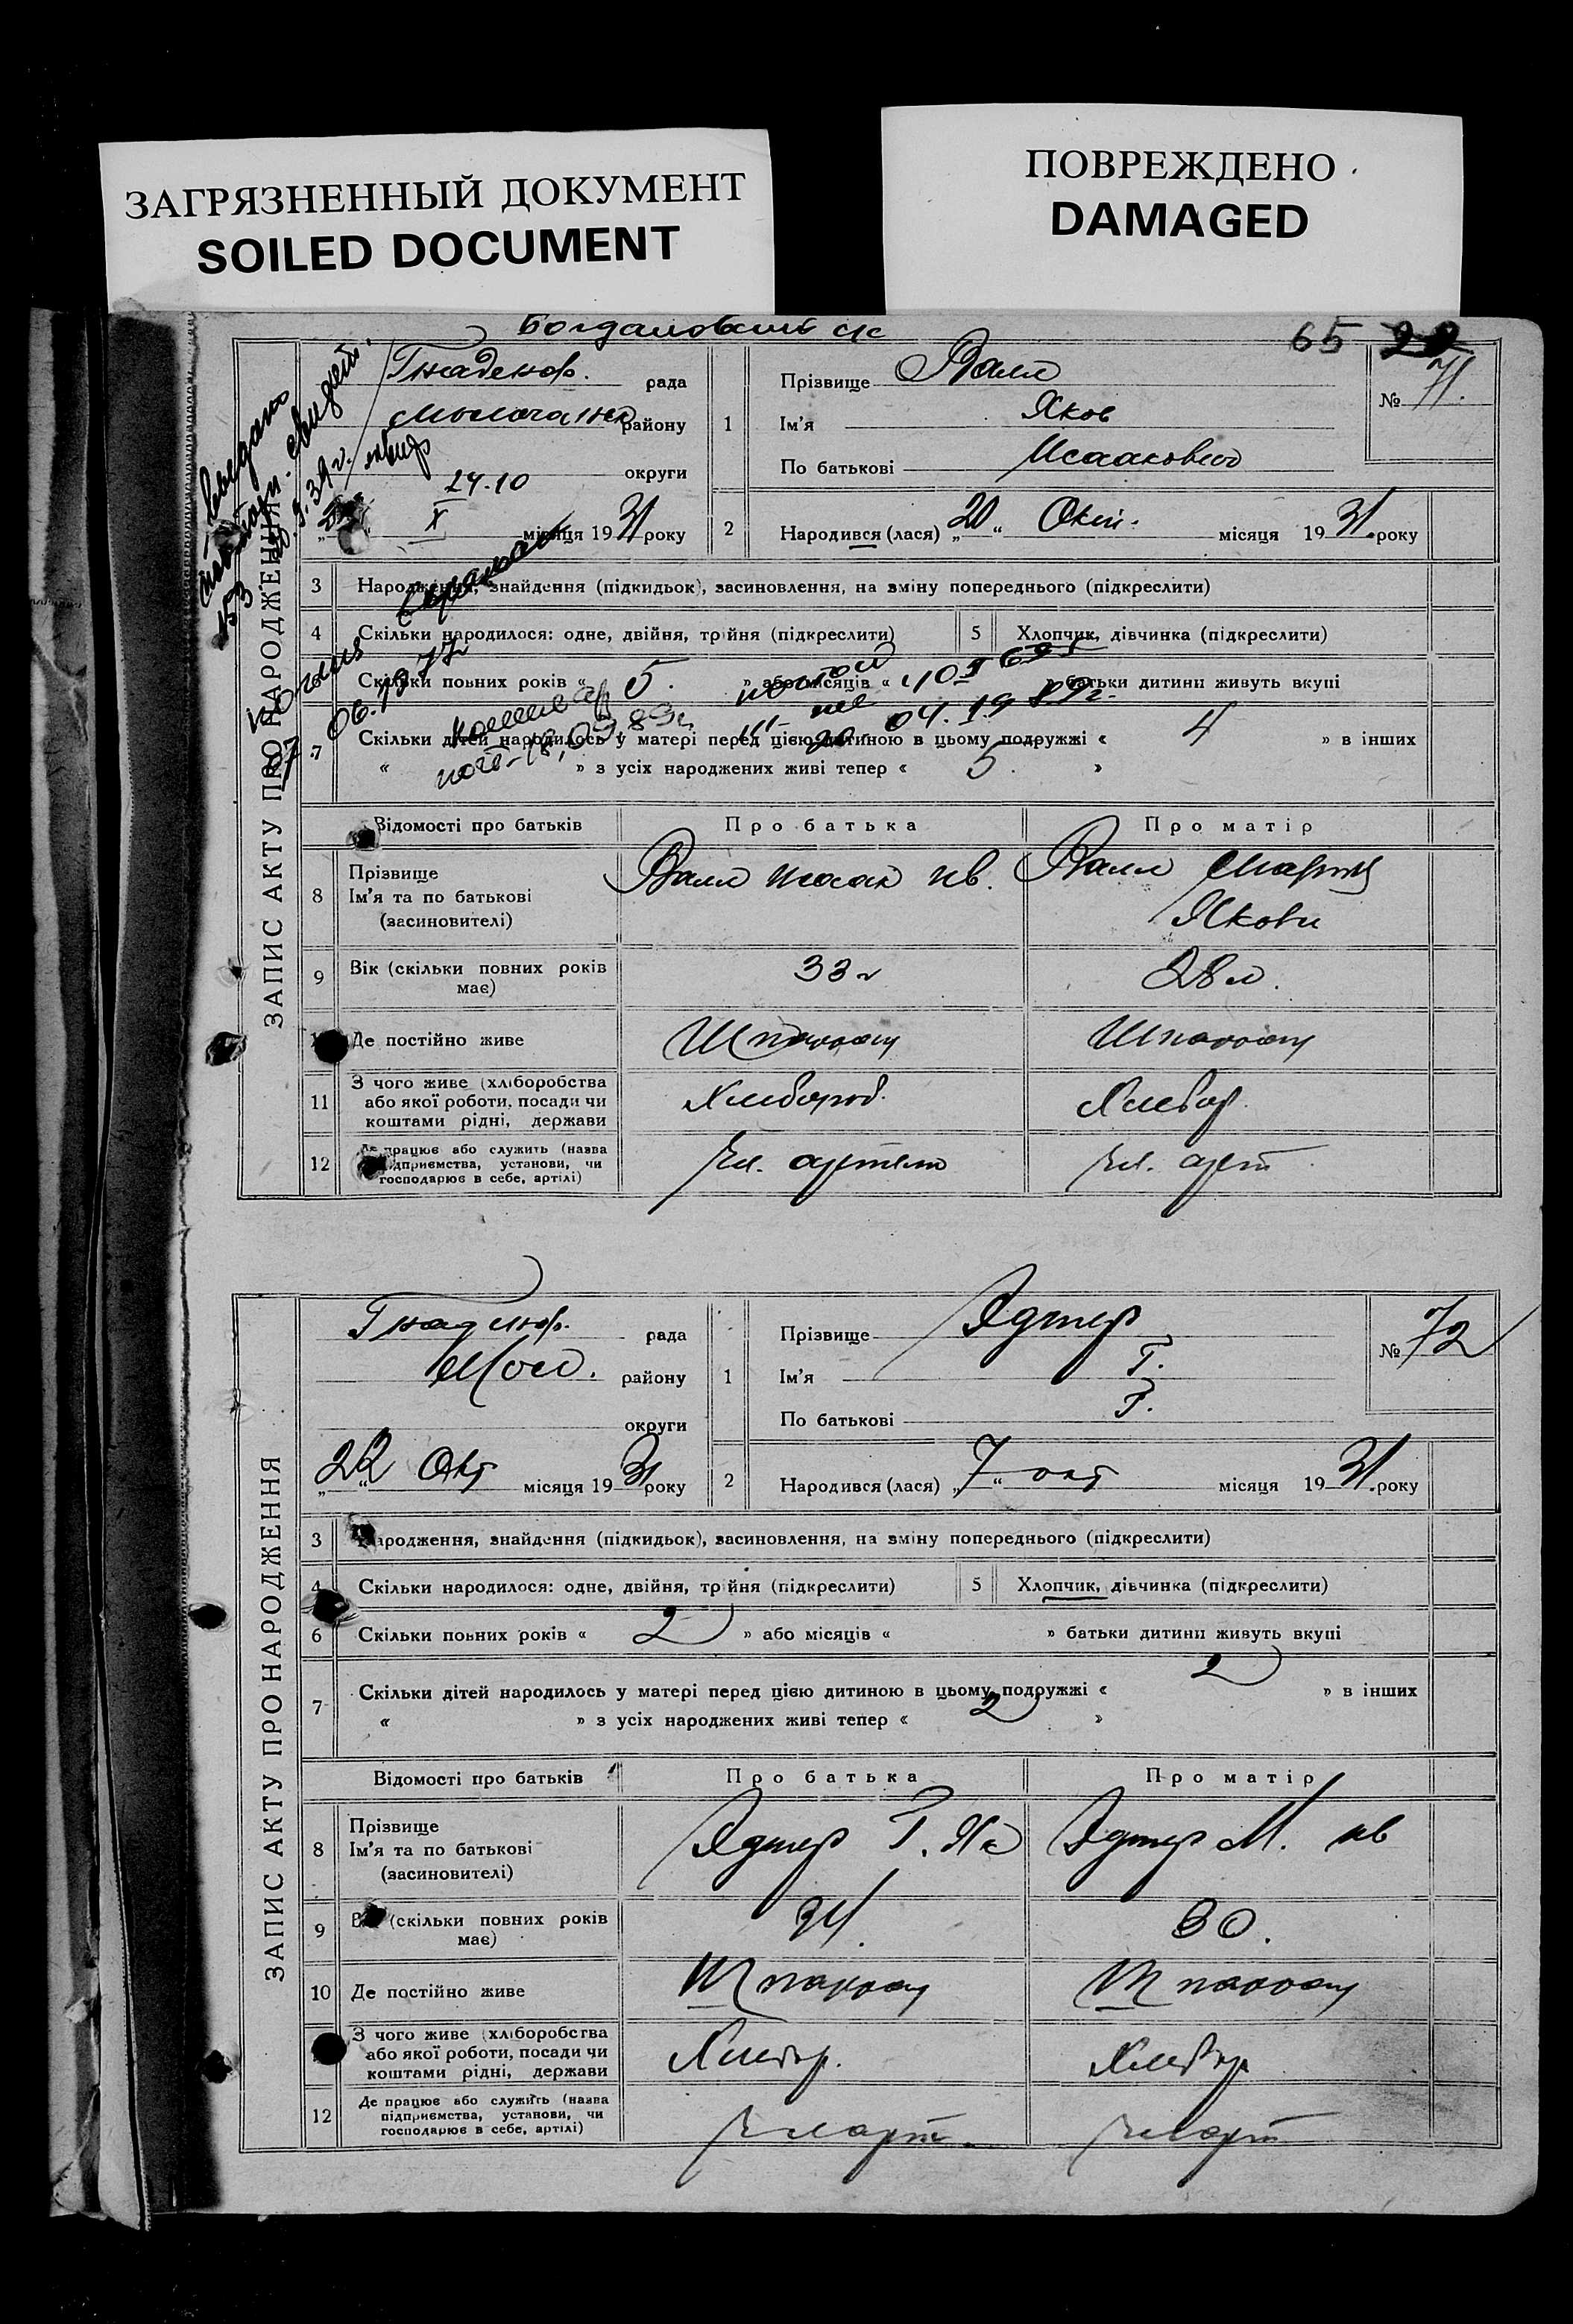 ЗАГРЯЗНЕННЫЙ ДОКУМЕНТ
SOILED DOCUMENT
ПОВРЕЖДЕНО
DAMAGED
65
ЗАПИС АКТУ ПРО НАРОДЖЕННЯ
Гнаденф. рада
району
округи
24.10
X місяця 1931 року
1 Прізвище Валл
Ім'я Яков
По батькові Исаакович
№ 71.
2 Народився (лася) „20“ Окт. місяця 1931 року
3 Народження, знайдення (підкидьок), засиновлення, на зміну попереднього (підкреслити)
4 Скільки народилося: одне, двійня, трійня (підкреслити) 5 Хлопчик, дівчинка (підкреслити)
Скільки повних років « 5. » або місяців « » батьки дитини живуть вкупі
7 Скільки дітей народилось у матері перед цією дитиною в цьому подружжі « 4 » в інших
« » з усіх народжених живі тепер « 5. »
Відомості про батьків Про батька Про матір
8 Прізвище Ім'я та по батькові (засиновителі) Валл Исаак Ив. Валл Мария Якови
9 Вік (скільки повних років має) 33 г 28 л.
Де постійно живе Шпаррау Шпаррау
11 З чого живе (хліборобства або якої роботи, посади чи коштами рідні, держави Хлебороб. Хлебор.
12 Де працює або служить (назва підприємства, установи, чи господарює в себе, артілі) Чл. артели Чл. арт
ЗАПИС АКТУ ПРО НАРОДЖЕННЯ
Гнаденф. рада
Мол. району
округи
„22“ Окт місяця 1931 року
1 Прізвище Эдигер
Ім'я Г.
По батькові Г.
№ 72
2 Народився (лася) „7“ окт місяця 1931 року
3 Народження, знайдення (підкидьок), засиновлення, на зміну попереднього (підкреслити)
4 Скільки народилося: одне, двійня, трійня (підкреслити) 5 Хлопчик, дівчинка (підкреслити)
6 Скільки повних років « 2 » або місяців « » батьки дитини живуть вкупі
7 Скільки дітей народилось у матері перед цією дитиною в цьому подружжі « 2 » в інших
« » з усіх народжених живі тепер « 2 »
Відомості про батьків Про батька Про матір
8 Прізвище Ім'я та по батькові (засиновителі) Эдигер Г. Як Эдигер М. Ив
9 Вік (скільки повних років має) 34. 30.
10 Де постійно живе Шпаррау Шпаррау
З чого живе (хліборобства або якої роботи, посади чи коштами рідні, держави Хлебор. Хлебор
12 Де працює або служить (назва підприємства, установи, чи господарює в себе, артілі) Чл арт. Чл арт